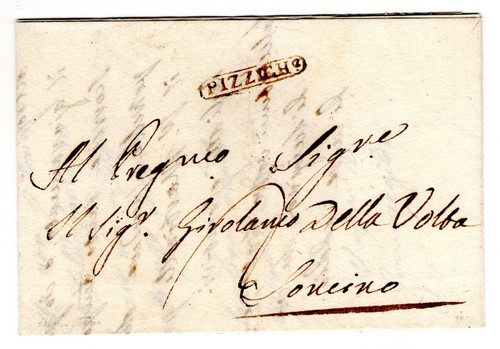 PIZZIGH
Al Pregmeo Sigre
Il Sigr. Girolamo Della Volta
Soncino